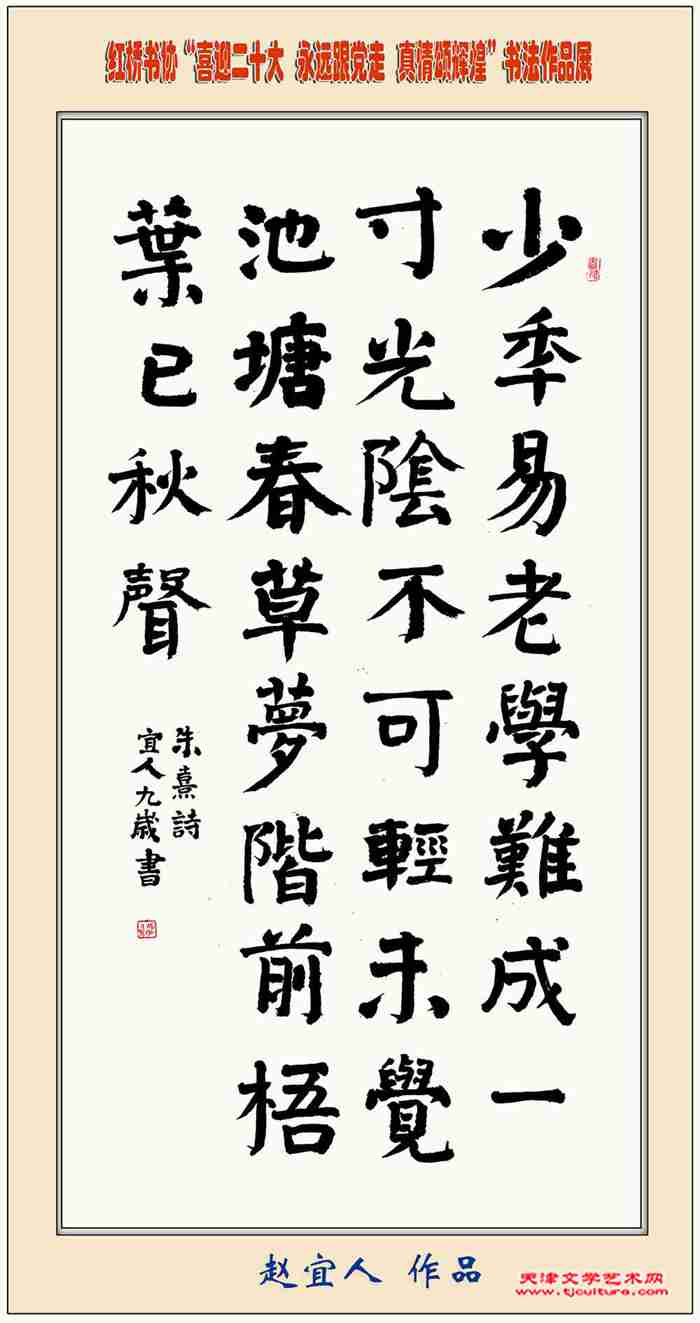 红桥书协“喜迎二十大 永远跟党走 真情颂辉煌”书法作品展
少年易老學難成一
寸光陰不可輕未覺
池塘春草夢階前梧
葉已秋聲
朱熹詩
宜人九歲書
赵宜人 作品
天津文学艺术网
www.tjculture.com